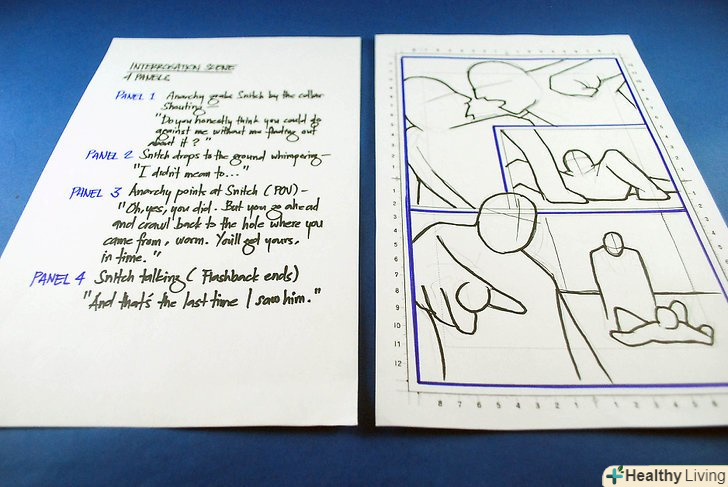 INTERROGATION SCENE
4 PANELS
PANEL 1 Anarchy grabs Snitch by the collar
Shouting –
"Do you honestly think you could go
against me without me finding out
about it?"
PANEL 2 Snitch drops to the ground whimpering –
"I didn't mean to..."
PANEL 3 Anarchy points at Snitch (POV) –
"Oh, yes, you did. But you go ahead
and crawl back to the hole where you
came from, worm. You'll get yours,
in time."
PANEL 4 Snitch talking (Flashback ends)
"And that's the last time I saw him."
1
2
3
4
5
6
7
8
9
10
11
12
8 7 6 5 4 3 2 1 1 2 3 4 5
Healthy Living